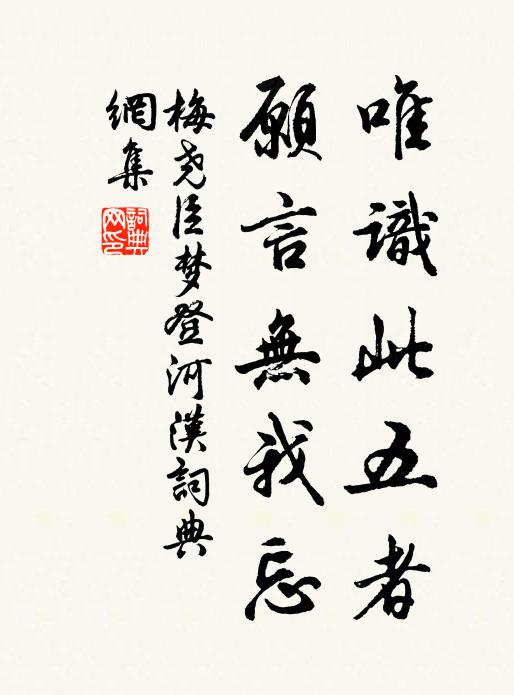 唯識此五者
願言無我忘
梅尧臣梦登河漢詞典
網集
詞典网印